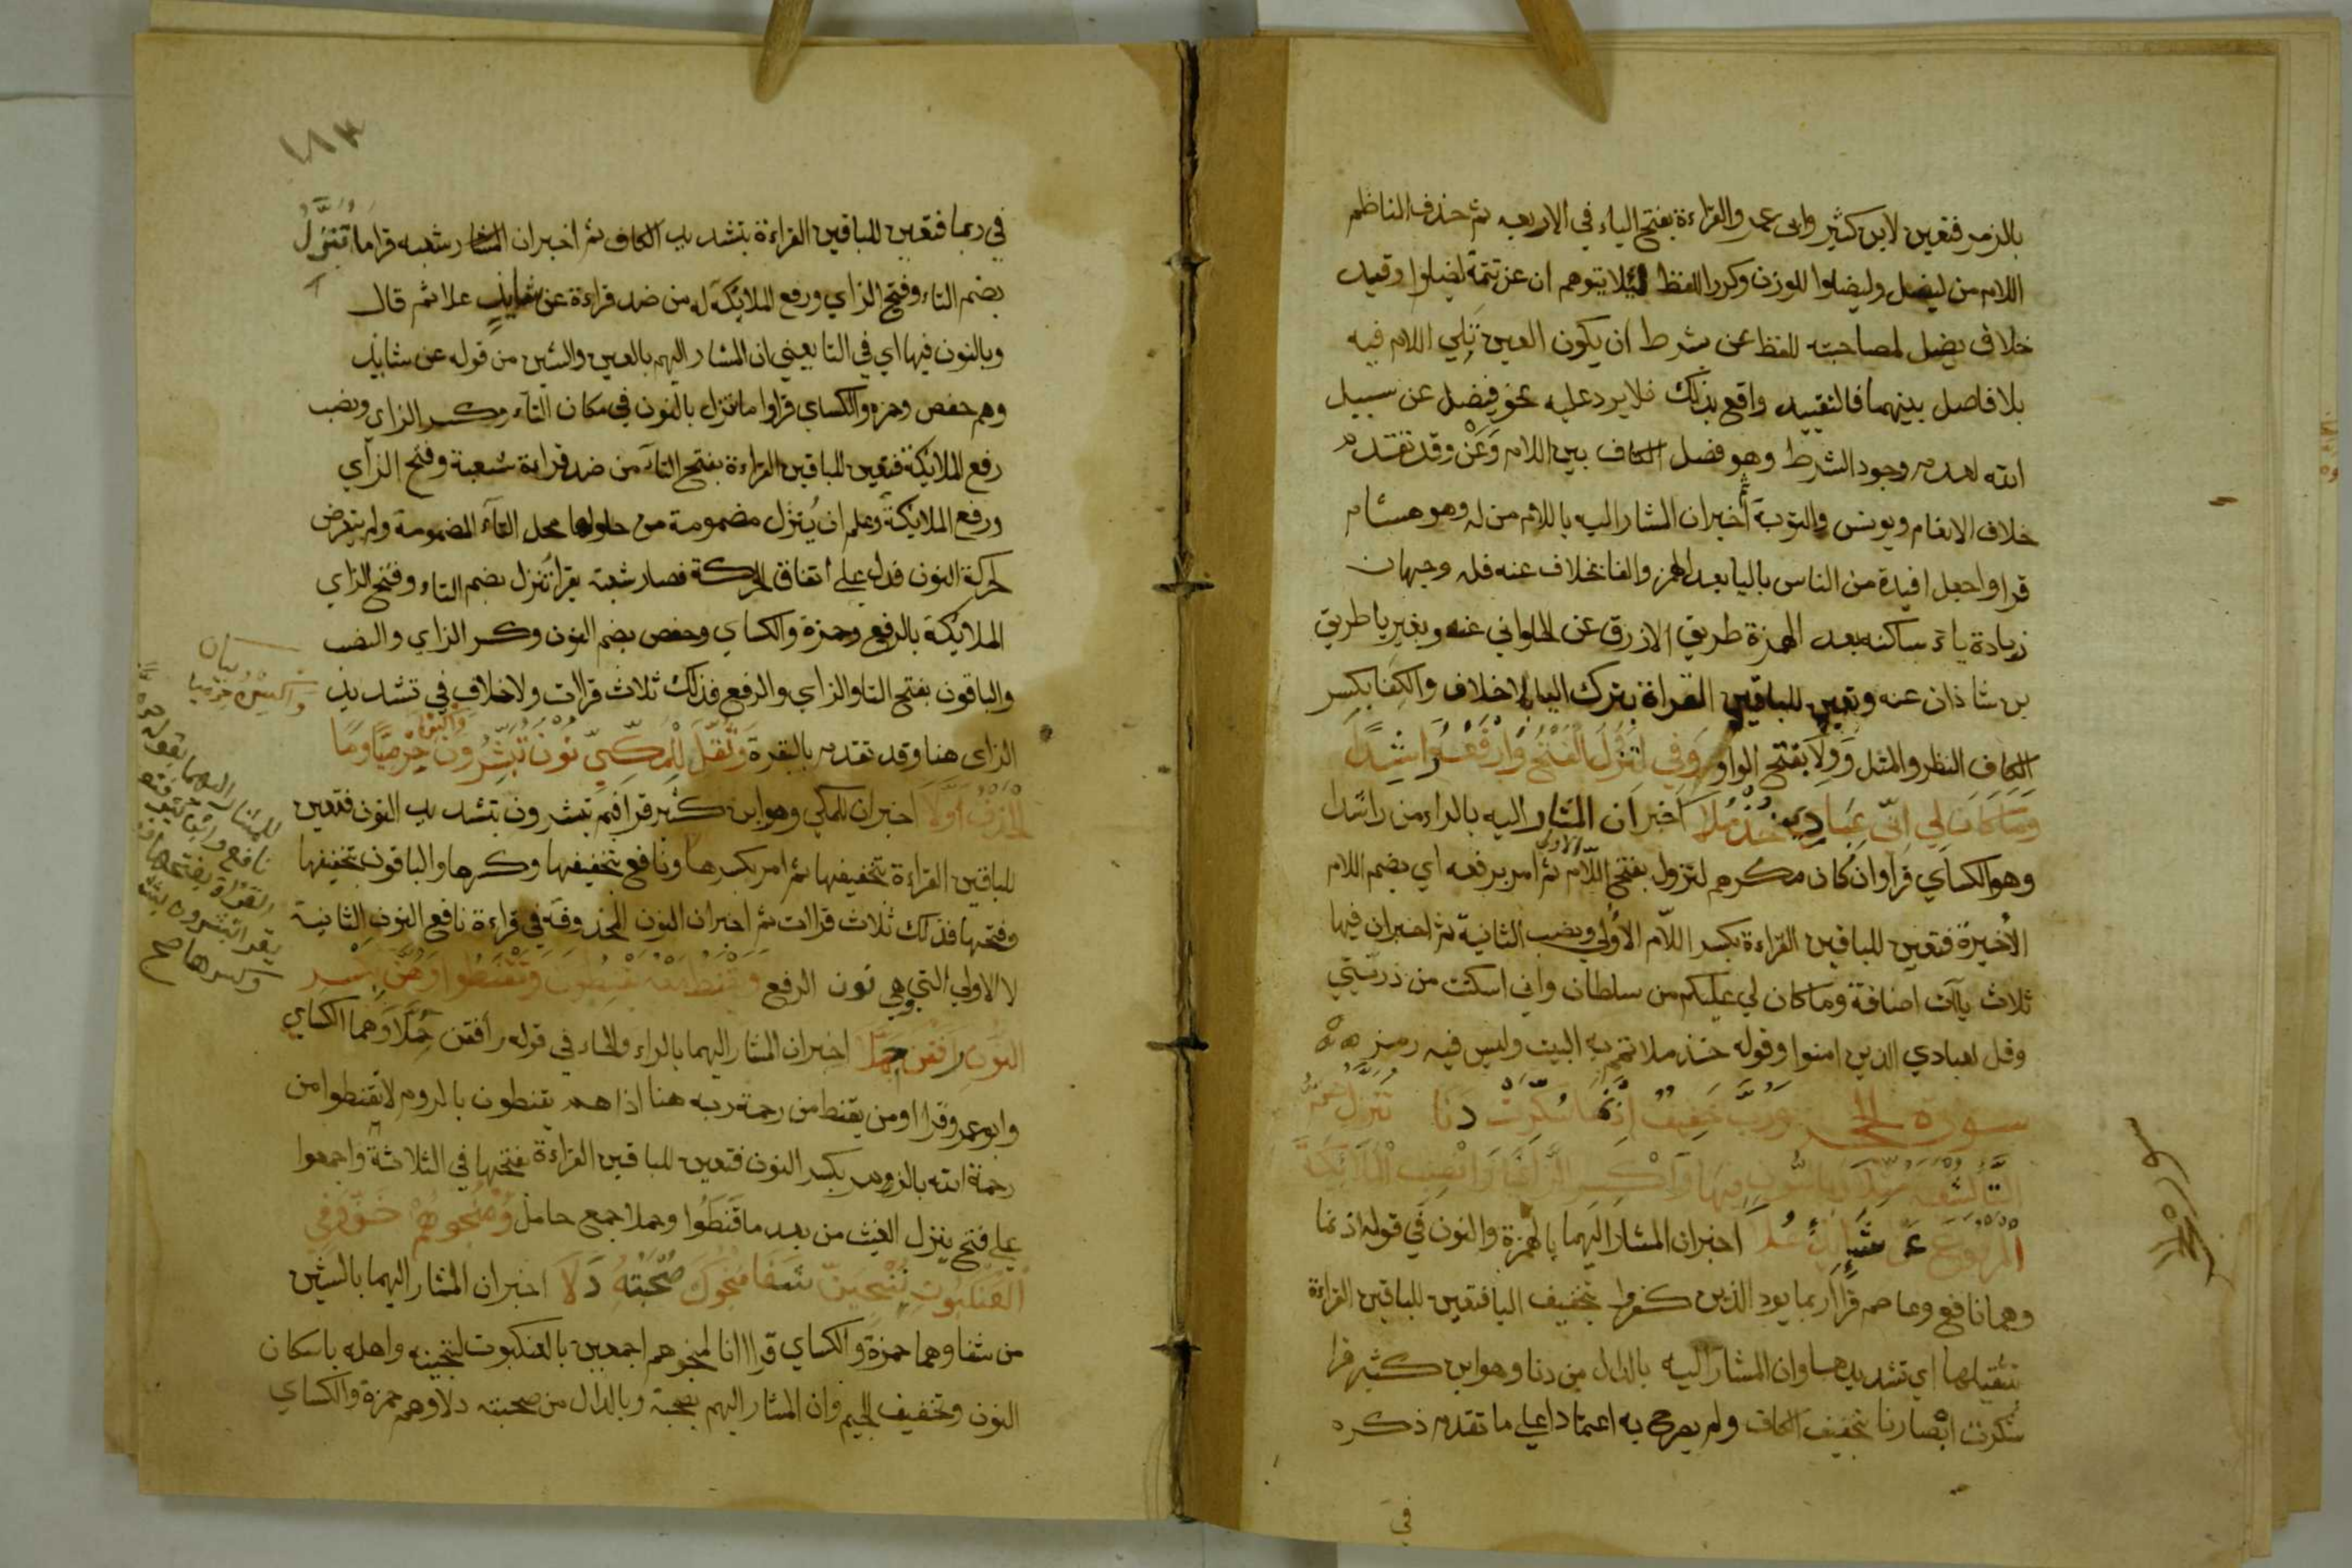 بالزمر فتعين لابن كثير وابى عمرو القراءة بفتح الياء في الاربعه ثم حذف الناظم
اللام من ليضل وليضلوا للوزن وكرر اللفظ ليلا يتوهم ان عن تتمة ليضلوا وقيد
خلاف يضل لمصاحبته للفظ عن شرط ان يكون العين تلي اللام فيه
بلا فاصل بينهما فالتقييد واقع بذلك فلا يرد عليه نحو فيضل عن سبيل
الله لعدم وجود الشرط وهو فصل الكاف بين اللام وَعَنْ وقد تقدم
خلاف الانعام ويونس والتوبة أخبر ان المشار اليه باللام من له وهو هشام
قرا واجعل افيدة من الناس باليا بعد الهمز والفا بخلاف عنه فله وجهان
زيادة ياء ساكنه بعد الهمزة طريق الازرق عن الحلواني عنه وبغير يا طريق
بن شاذان عنه وتعين للباقين القراة بترك اليا بلا خلاف والكفا بكسر
الكاف النظر والمثل وَوِلاَ بفتح الواو وَفي لِتَزُولَ الْفَتْحُ وَارْفَعْهُ رَاشِدًا
وَمَا كَانَ لِي اِنّي عِبَادِيَ خُذْ مُلاَ اخبر ان المشار اليه بالراء من راشدا
وهو الكساي قرا وان كان مكرهم لتزول بفتح اللام الاولى ثم امر برفعه اي بضم اللام
الأخيرة فتعين للباقين القراءة بكسر اللّام الأولي ونصب الثانية ثم اخبر ان فيها
ثلاث يآت اضافة وما كان لي عليكم من سلطان واني اسكنت من ذريتي
وقل لعبادي الذين امنوا وقوله خذ ملا تمم به البيت وليس فيه رمز
سورة الحجر وَرُبَّ خَفِيفٌ اِذْ نَمَا سُكِّرَتْ دَنَا تَنَزَّلُ ضَمُّ
التَّا لِشُعْبَةَ مُثِّلاَ وَبِالنُّونِ فِيهَا وَاكْسِرِ الزَّايَ وَانْصِبِ الْمَلاَئِكَةَ
الْمَرْفُوعَ عَنْ شَائِدٍ عُلاَ اخبر ان المشار اليهما بالهمزة والنون في قوله اذ نما
وهما نافع وعاصم قراا ربما يود الذين كفروا بتخفيف البا فتعين للباقين القراءة
بتثقيلها اي تشديدها وان المشار اليه بالدال من دنا وهو ابن كثير قرا
سُكرت ابصارنا بتخفيف الكاف ولم يصرح به اعتمادا علي ما تقدم ذكره
في
سورة الحجر
١٨٣
في ربما فتعين للباقين القراءة بتشديد الكاف ثم اخبر ان المشار شعبه قرا مَا تُنَزَّلُ
بضم التاء وفتح الزاي ورفع الملائكة له من ضد قراءة عن شايد علا ثم قال
وبالنون فيها اي في التا يعني ان المشار اليهم بالعين والشين من قوله عن شايد
وهم حفص وحمزه والكساي قراوا ما ننزل بالنون في مكان التاء وكسر الزاي ونصب
رفع الملايكة فتعين للباقين القراءة بفتح التاء من ضد قراءة شعبة وفتح الزاي
ورفع الملايكة وعلم ان يُنزل مضمومة من حلولها محل التاء المضمومة ولم يتعرض
لحركة النون فدل علي اتفاق الحركة فصار شعبة يقرا تُنزل بضم التاء وفتح الزاي
الملايكة بالرفع وحمزة والكساي وحفص بضم النون وكسر الزاي والنصب
والباقون بفتح التا والزاي والرفع فذلك ثلاث قراات ولا خلاف في تشديد
الزاى هنا وقد تقدم بالبقرة وَثُقِّلَ لِلْمَكِّيِّ نُونُ تُبَشِّرُونَ حِرْمِيًّا وَمَا
الْحَذْفُ أَوَّلاَ اخبر ان المكي وهو ابن كثير قرا فبم تبشرون بتشديد النون فتعين
للباقين القراءة بتخفيفها ثم امر بكسرها ونافع بتخفيفها وكسرها والباقون بتخفيفها
وفتحها فذلك ثلاث قراات ثم اخبر ان النون المحذوفة في قراءة نافع النون الثانية
لا الاولي التي هي نون الرفع وَيَقْنَطُ مَعْهُ يَقْنَطُونَ وَتَقْنَطُوا وَهُنَّ بِكَسْرِ
النُّونِ رَافَقْنَ حُمَّلاَ اخبر ان المشار اليهما بالراء والحاء في قوله رافقن حُمَّلاَ وهما الكساي
وابو عمرو قراا ومن يقنط من رحمة ربه هنا اذا هم يقنطون بالروم لا تقنطوا من
رحمة الله بالزمر بكسر النون فتعين للباقين القراءة بفتحها في الثلاثة واجمعوا
علي فتح ينزل الغيث من بعد ما قنطوا وحملا جمع حامل وَمُنْجُوهُمْ خَفَّ وَفِي
الْعَنْكَبُوتِ نُنْجِيَنَّ شَفَا مُنْجُوكَ صُحْبَتُهُ دَلاَ اخبر ان المشار اليهما بالشين
من شفا وهما حمزة والكساي قراا انا لمنجوهم اجمعين بالعنكبوت لننجينه واهله باسكان
النون وتخفيف الجيم وان المشار اليهم بصحبة وبالدال من صحبته دلا وهم حمزة والكساي
للمشار اليهما بقوله
نافع وابن كثير فتعين
القراة بفتحها
يقرا تبشرون
وكسرها صح